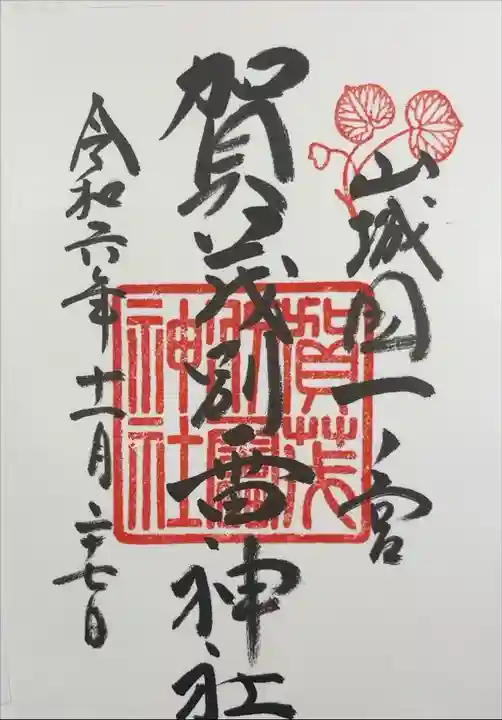 山城国一ノ宮
賀茂別雷神社
賀茂別雷神社
令和六年十一月二十七日